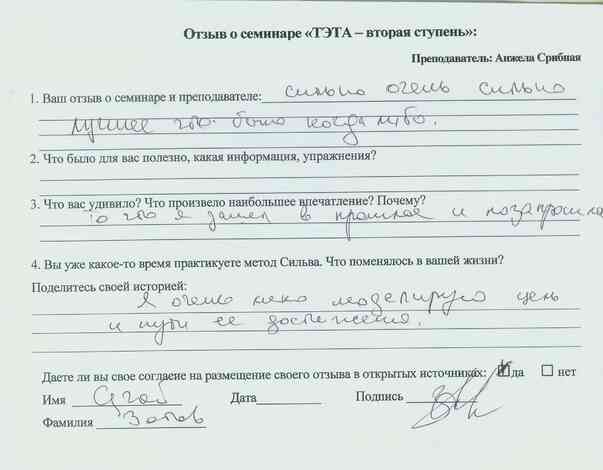 Отзыв о семинаре «ТЭТА – вторая ступень»:
Преподаватель: Анжела Срибная
1. Ваш отзыв о семинаре и преподавателе: сильно очень сильно
лучшее что было когда либо.
2. Что было для вас полезно, какая информация, упражнения?
3. Что вас удивило? Что произвело наибольшее впечатление? Почему?
То что я зашел в прошлое и
4. Вы уже какое-то время практикуете метод Сильва. Что поменялось в вашей жизни?
Поделитесь своей историей:
Я очень моделирую цель
и пути ее достижения.
Даете ли вы свое согласие на размещение своего отзыва в открытых источниках: да нет
Имя Дата Подпись
Фамилия